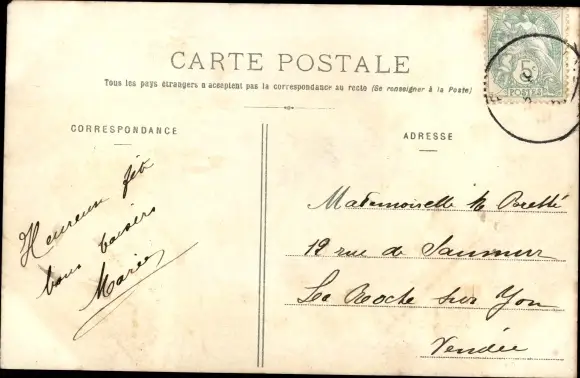 CARTE POSTALE
Tous les pays étrangers n'acceptent pas la correspondance au recto (Se renseigner à la Poste)
CORRESPONDANCE
Heureuse fête
bons baisers
Marie
ADRESSE
Mademoiselle
12 rue de Saumur
La Roche sur Yon
Vendée
5c
POSTES